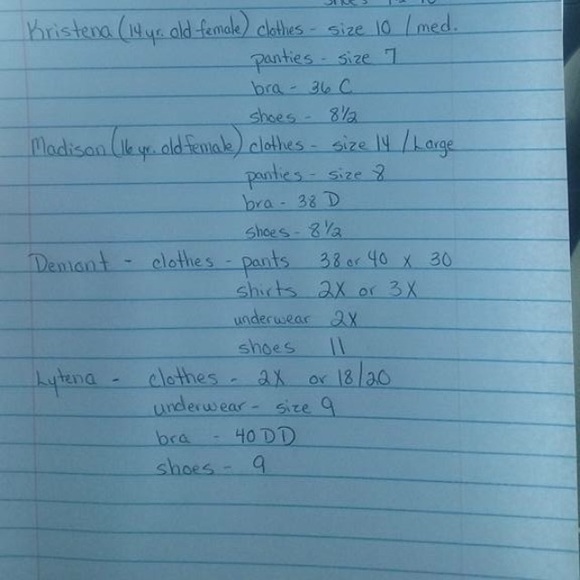 Kristena (14 yr. old female) clothes - size 10 / med.
panties - size 7
bra - 36 C
shoes - 8 1/2
Madison (16 yr. old female) clothes - size 14 / Large
panties - size 8
bra - 38 D
shoes - 8 1/2
Demont - clothes - pants 38 or 40 x 30
shirts 2X or 3X
underwear 2X
shoes 11
Lytena - clothes - 2X or 18/20
underwear - size 9
bra - 40 DD
shoes - 9